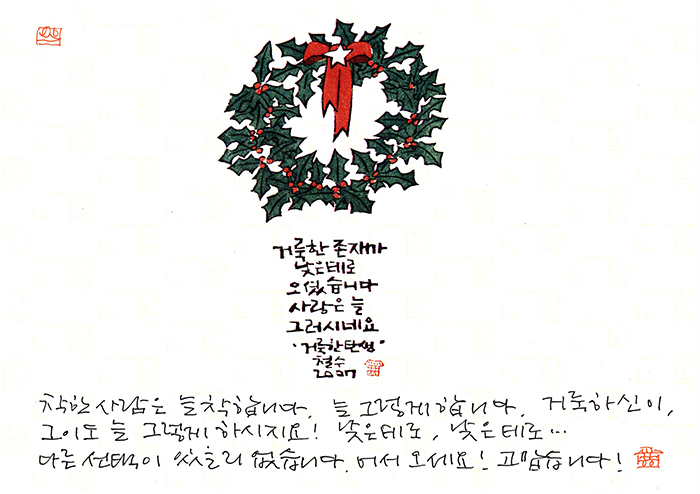 거룩한 존재가
낮은데로
오셨습니다
사랑은 늘
그러시네요
·거룩한탄생·
철수
2007
착한 사람은 늘 착합니다. 늘 그렇게 합니다. 거룩하신 이,
그이도 늘 그렇게 하시지요! 낮은데로, 낮은데로...
다른 선택이 있을리 없습니다. 어서 오세요! 고맙습니다!